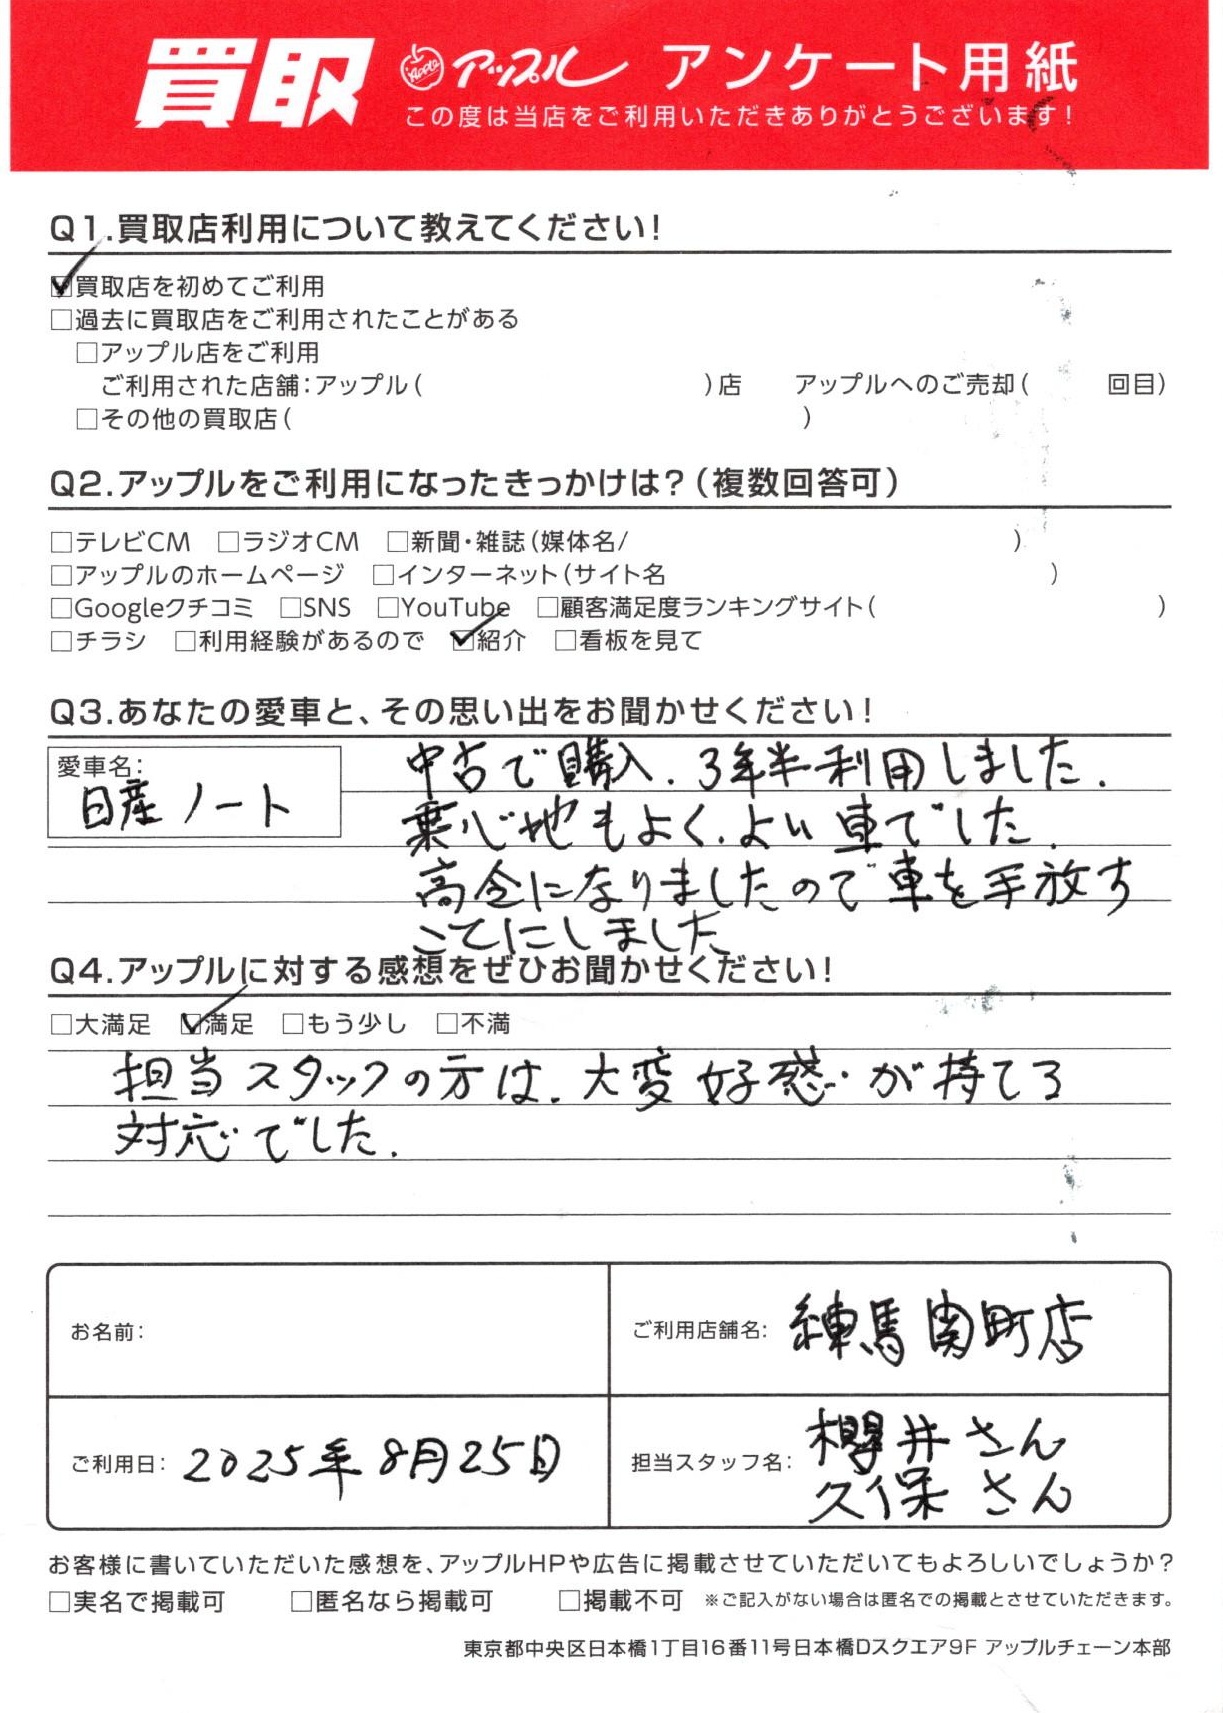 買取 Apple アップル アンケート用紙
この度は当店をご利用いただきありがとうございます!
Q1.買取店利用について教えてください!
☑買取店を初めてご利用
□過去に買取店をご利用されたことがある
□アップル店をご利用
ご利用された店舗:アップル( )店 アップルへのご売却( 回目)
□その他の買取店( )
Q2.アップルをご利用になったきっかけは?(複数回答可)
□テレビCM □ラジオCM □新聞・雑誌(媒体名/ )
□アップルのホームページ □インターネット(サイト名 )
□Googleクチコミ □SNS □YouTube □顧客満足度ランキングサイト( )
□チラシ □利用経験があるので ☑紹介 □看板を見て
Q3.あなたの愛車と、その思い出をお聞かせください!
愛車名:
日産 ノート
中古で購入.3年半利用しました.
乗心地もよく.よい車でした.
高令になりましたので車を手放す
ことにしました
Q4.アップルに対する感想をぜひお聞かせください!
□大満足 ☑満足 □もう少し □不満
担当スタッフの方は.大変好感が持てる
対応でした.
お名前:
ご利用店舗名: 練馬関町店
ご利用日: 2025年8月25日
担当スタッフ名: 櫻井さん
久保さん
お客様に書いていただいた感想を、アップルHPや広告に掲載させていただいてもよろしいでしょうか?
□実名で掲載可 □匿名なら掲載可 □掲載不可 ※ご記入がない場合は匿名での掲載とさせていただきます。
東京都中央区日本橋1丁目16番11号日本橋Dスクエア9F アップルチェーン本部